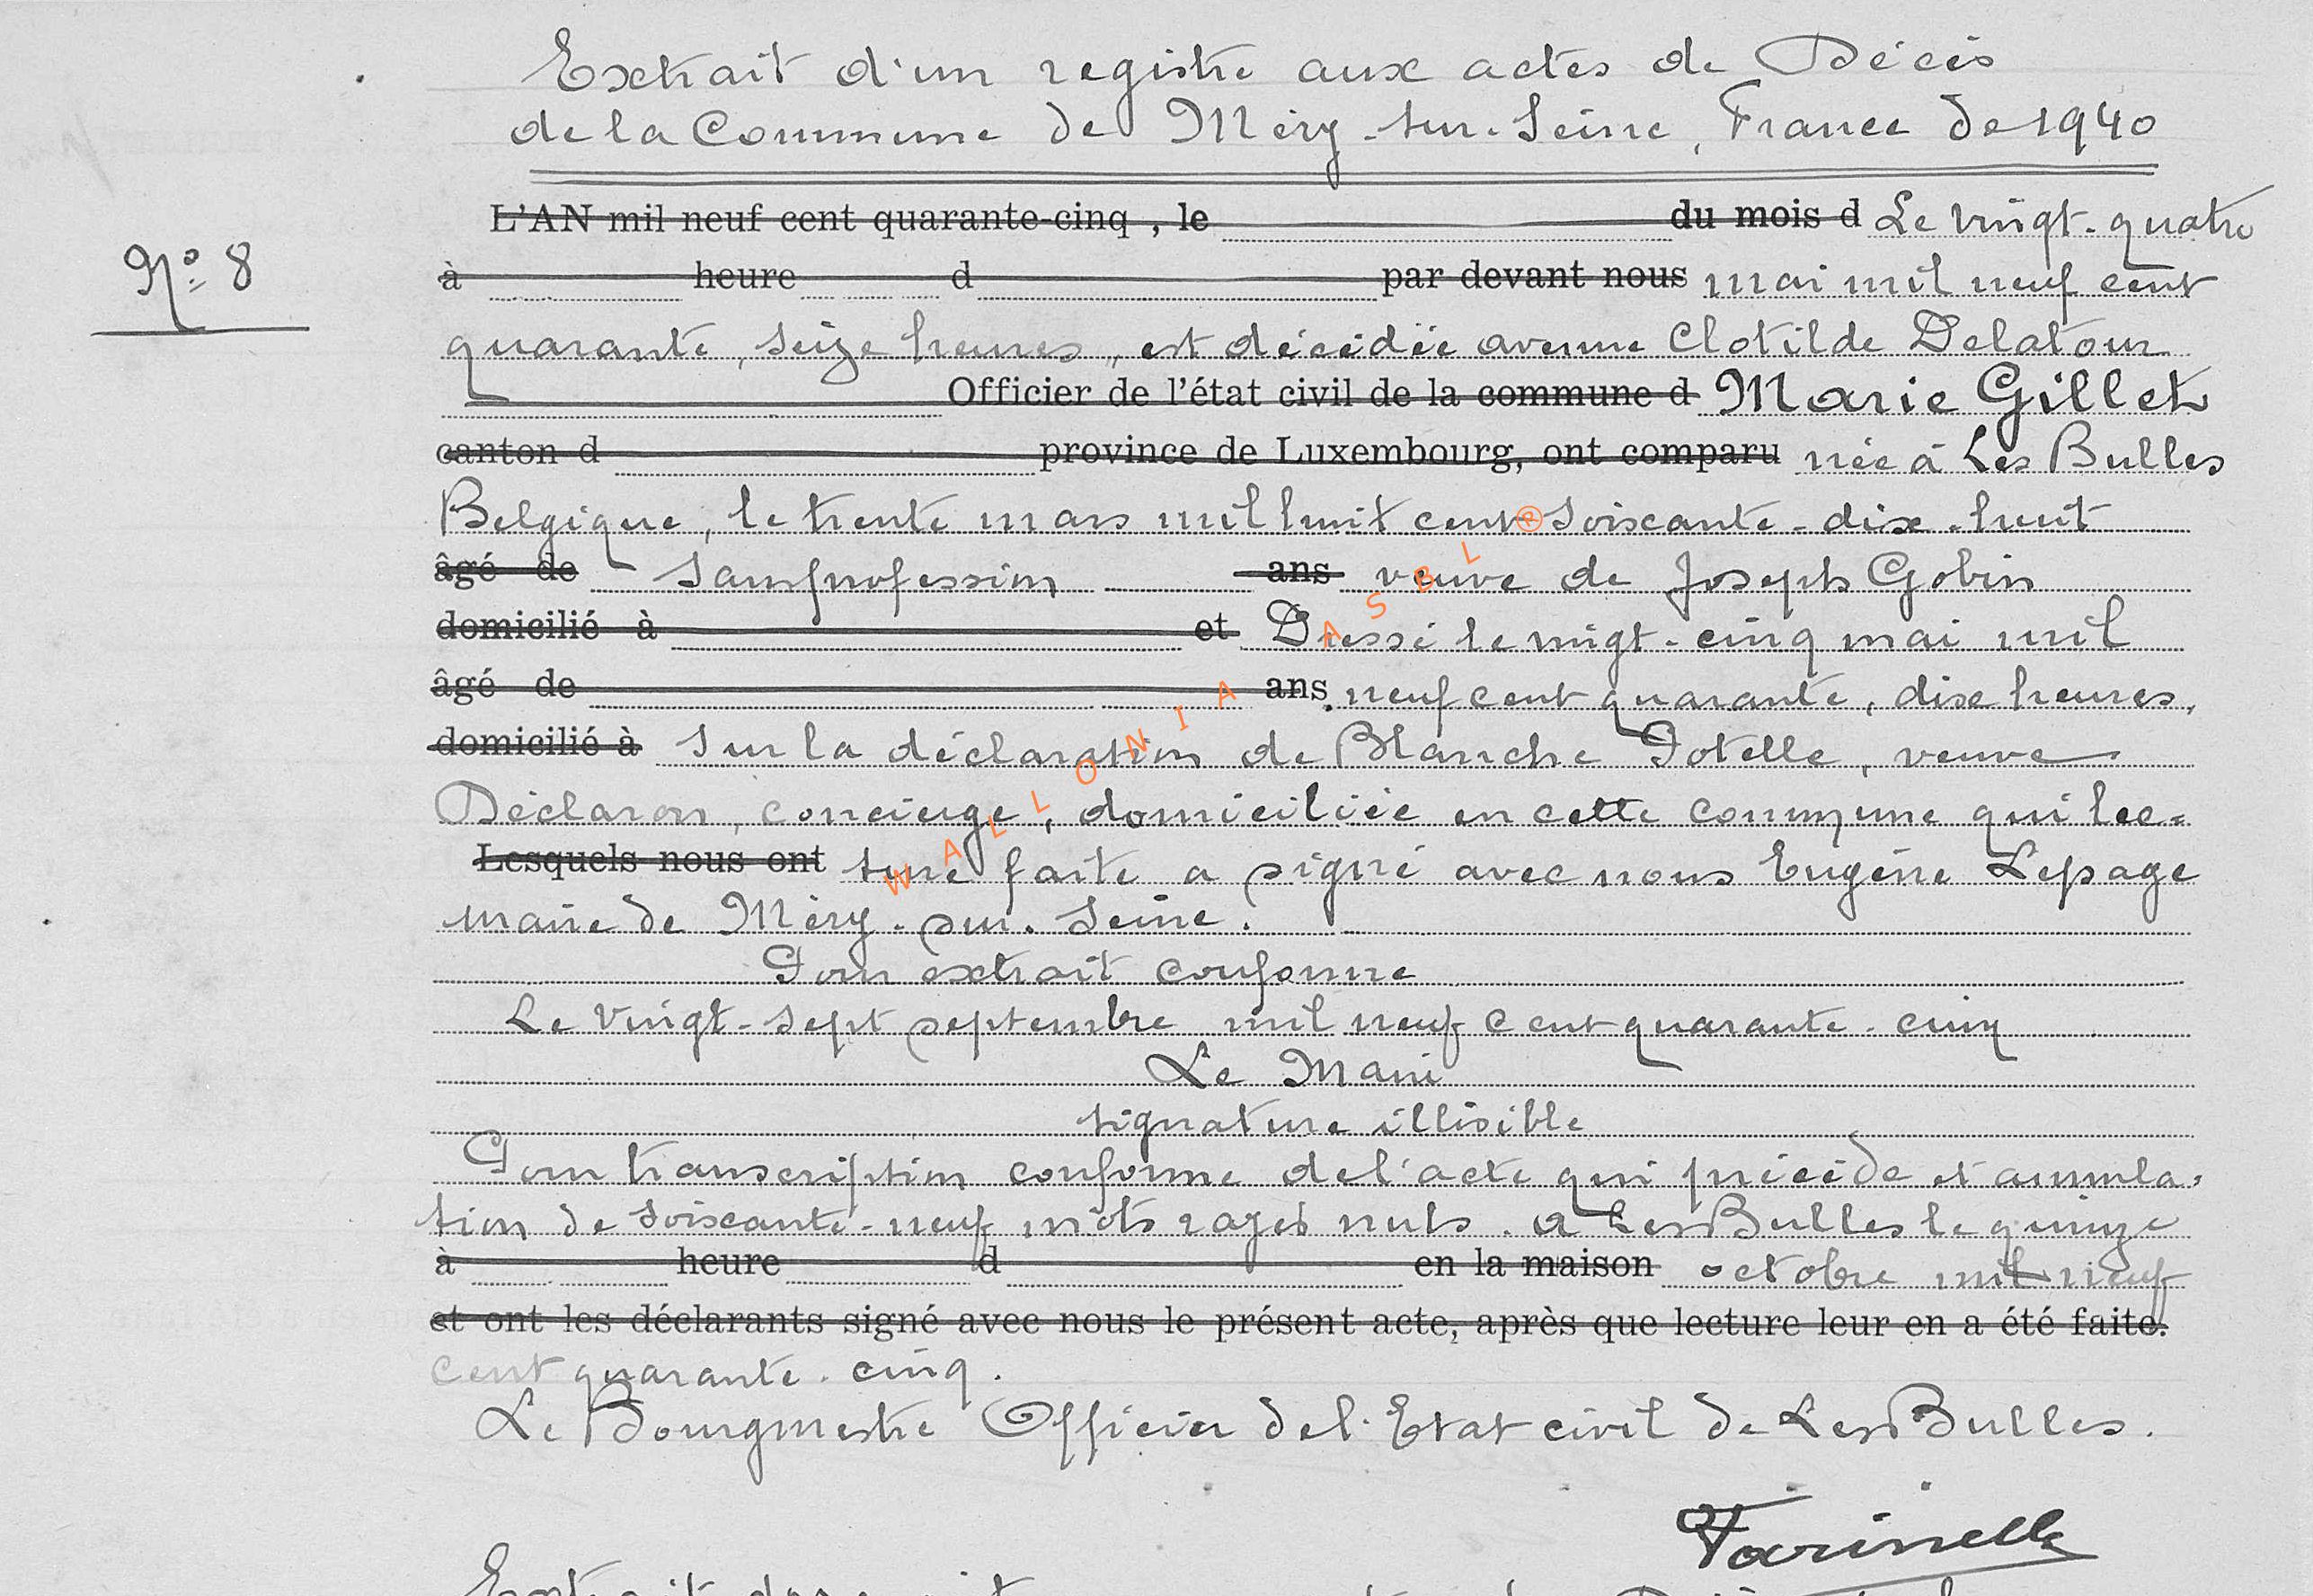 Extrait d'un registre aux actes de Décès
de la Commune de Méry-sur-Seine, France de 1940
L'AN mil neuf cent quarante-cinq, le du mois d Le vingt-quatre
N° 8
à heure d par devant nous mai mil neuf cent
quarante, seize heures, est décédée avenue Clotilde Delatour
Officier de l'état civil de la commune d Marie Gillet
canton d province de Luxembourg, ont comparu née à Les Bulles
Belgique, le trente mars mil huit cent soixante-dix-huit
âgé de sans profession ans veuve de Joseph Gobin
domicilié à et Dressé le vingt-cinq mai mil
âgé de ans neuf cent quarante, dix heures,
domicilié à sur la déclaration de Blanche Potelle, veuve
Déclaron, concierge, domiciliée en cette commune qui lec-
Lesquels nous ont ture faite a signé avec nous Eugène Lepage
maire de Méry-sur-Seine.
Pour extrait conforme
Le vingt-sept septembre mil neuf cent quarante-cinq
Le Maire
signature illisible
Pour transcription conforme de l'acte qui précède et annula-
tion de soixante-neuf mots rayés nuls. A Les Bulles le quinze
à heure d en la maison octobre mil neuf
et ont les déclarants signé avec nous le présent acte, après que lecture leur en a été faite.
cent quarante-cinq.
Le Bourgmestre Officier de l'Etat civil de Les Bulles.
Farinelle
WALLONIA ASBL ®